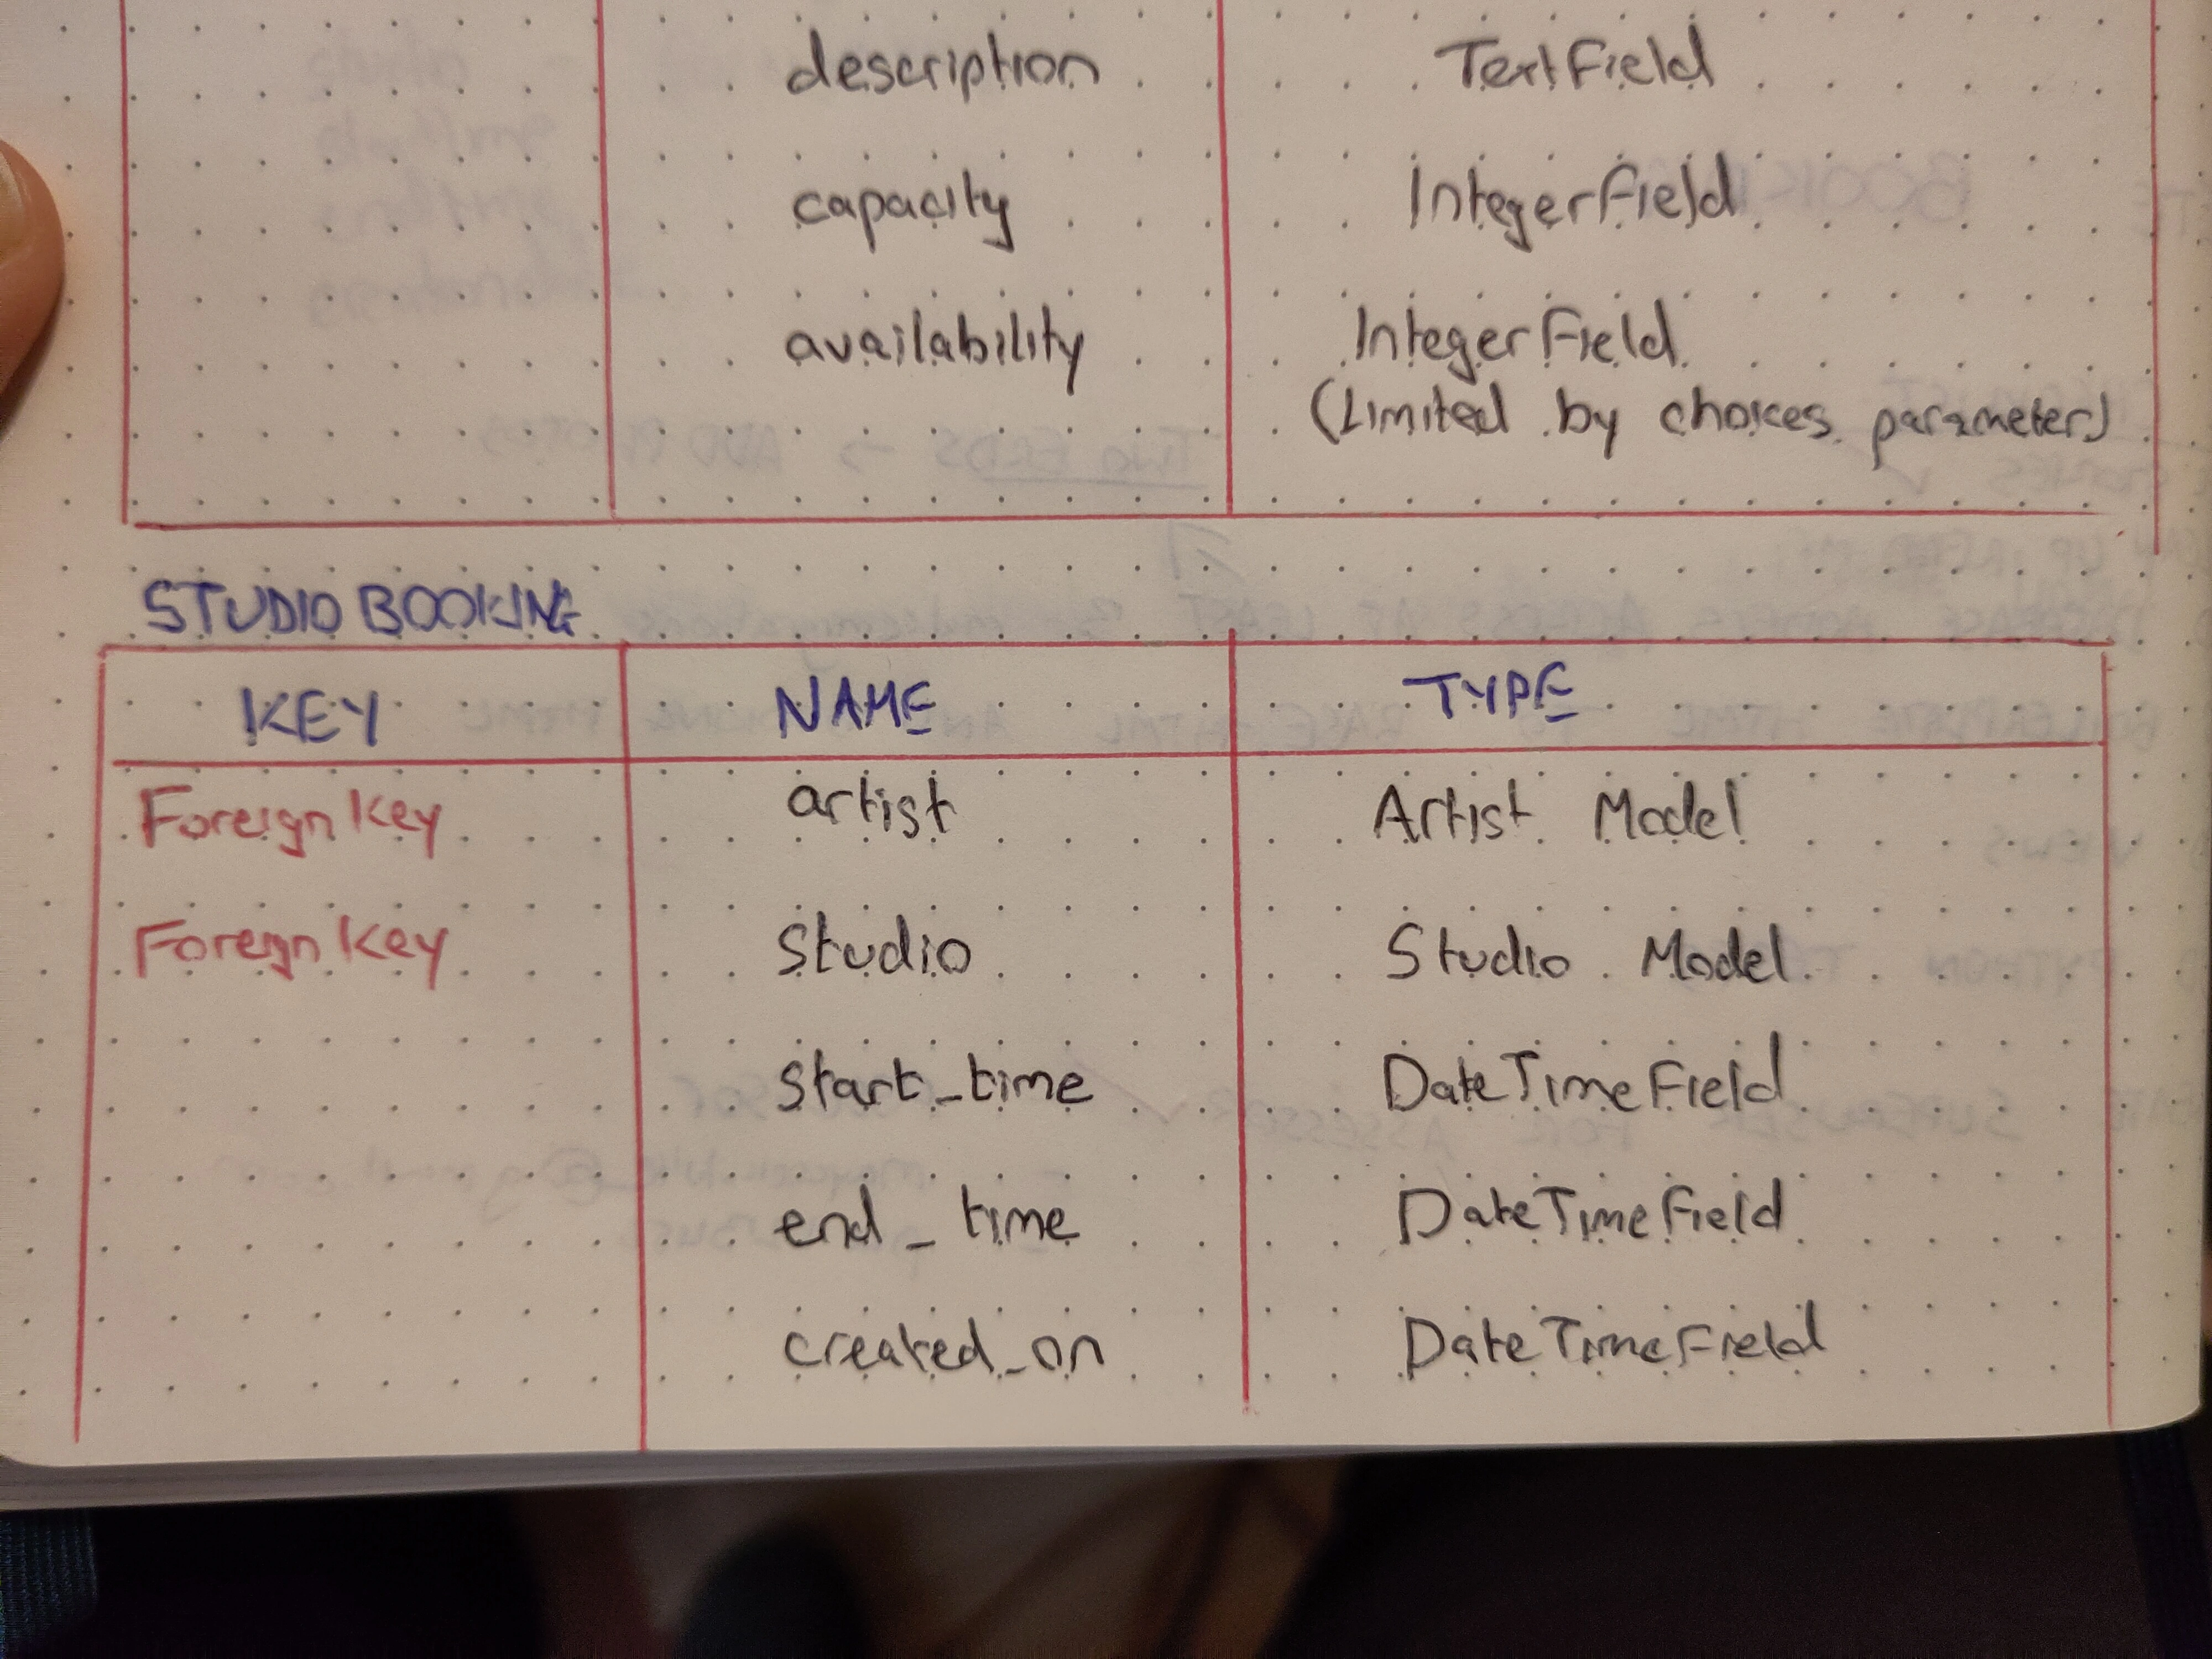 description TextField
capacity IntegerField
availability IntegerField
(Limited by choices parameter)
STUDIO BOOKING
KEY NAME TYPE
Foreign Key artist Artist Model
Foreign Key Studio Studio Model
Start_time DateTimeField
end_time DateTimeField
created_on DateTimeField